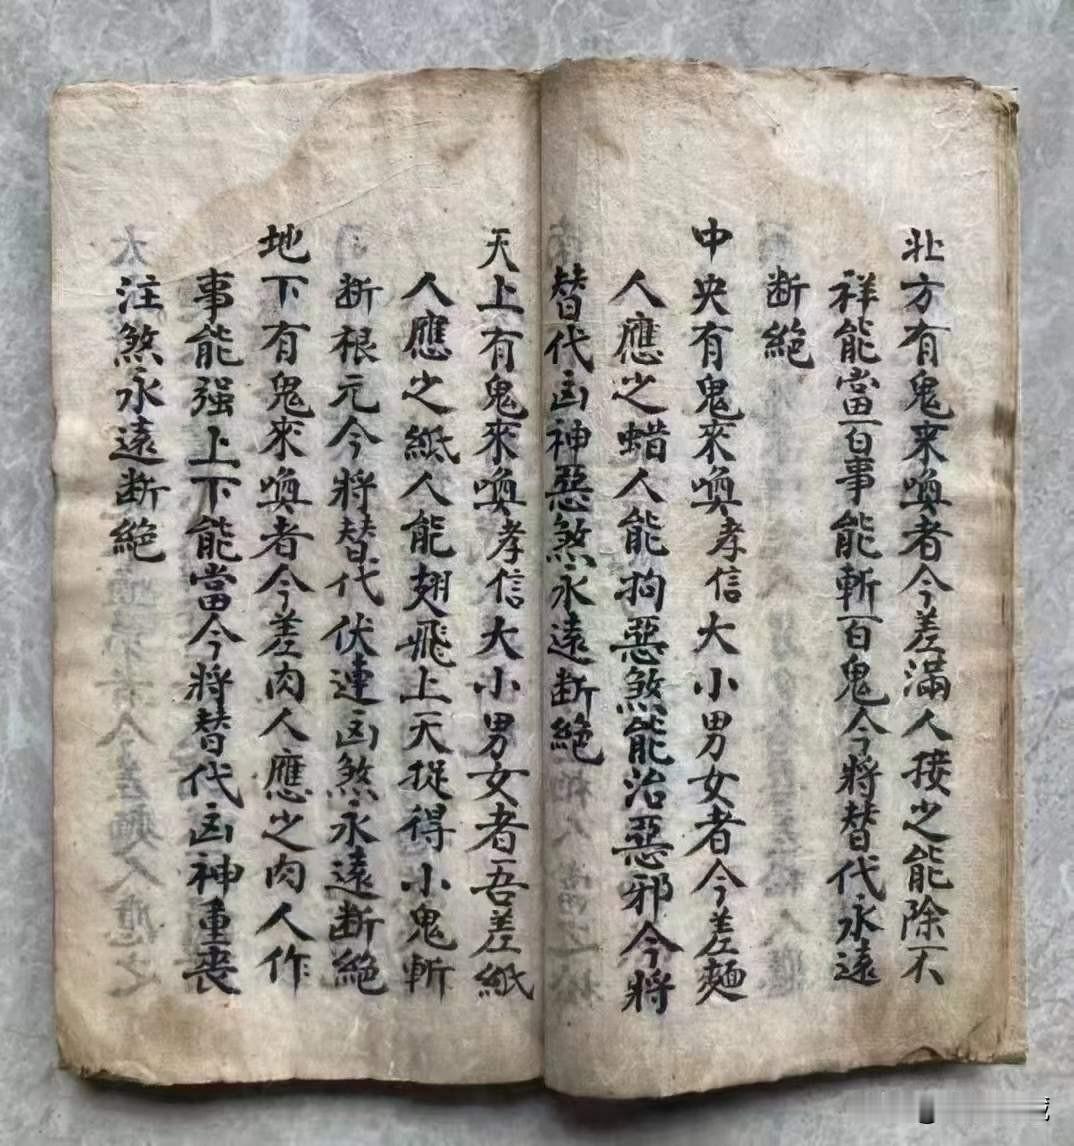 北方有鬼来喚者今差滿人接之能除不
祥能當百事能斬百鬼今將替代永遠
断絶
中央有鬼來喚孝信大小男女者今差麵
人應之蜡人能拘惡煞能治惡邪今將
替代凶神惡煞永遠断絶
天上有鬼來喚孝信大小男女者吾差紙
人應之紙人能翅飛上天捉得小鬼斬
断根元今將替代伏連凶煞永遠断絶
地下有鬼來喚者今差肉人應之肉人作
事能强上下能當今將替代凶神重喪
注煞永遠断絶